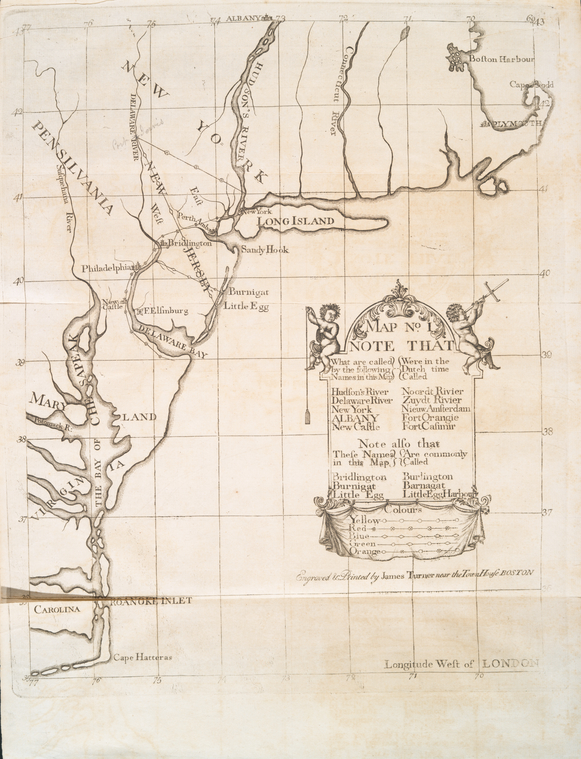 ALBANY
76
75
74
73
72
71
70
43
Boston Harbour
Cape Codd
42
PLYMOUTH
NEW YORK
HUDSON'S RIVER
Connecticut River
DELAWARE RIVER
PENSILVANIA
Susquehana River
NEW JERSEY
East
West
41
New York
Perth Amboy
LONG ISLAND
Bridlington
Sandy Hook
Philadelphia
40
Burnigat
New Castle
F. Elsinburg
Little Egg
DELAWARE BAY
39
MARY LAND
THE BAY OF CHESAPEAK
38
VIRGINIA
37
CAROLINA
ROANOKE INLET
Cape Hatteras
MAP No. I.
NOTE THAT
What are called by the following Names in this Map
Were in the Dutch time Called
Hudson's River Noordt Rivier
Delaware River Zuydt Rivier
New York Nieuw Amsterdam
ALBANY Fort Orangie
New Castle Fort Casimir
Note also that
These Names in this Map,
Are commonly Called
Bridlington Burlington
Burnigat Barnagat
Little Egg Little Egg Harbour
Colours
Yellow
Red
Blue
Green
Orange
Engraved & Printed by James Turner near the Town House BOSTON
Longitude West of LONDON
76
75
74
73
72
71
70